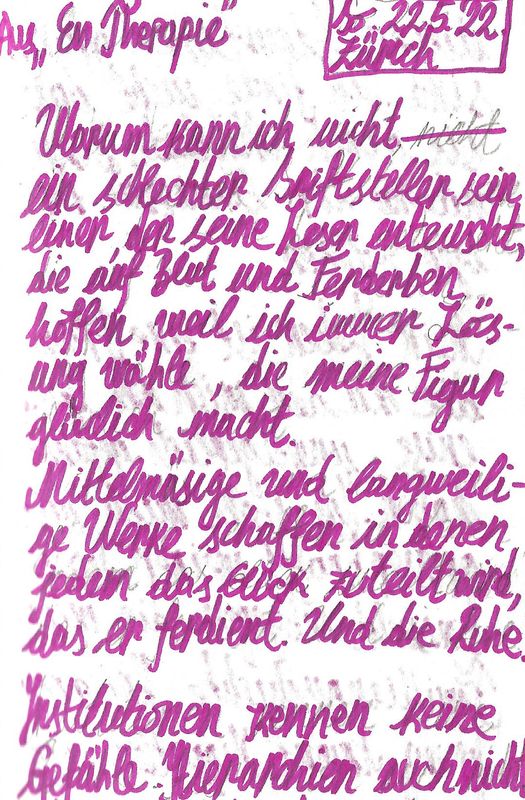 Aus „En Therapie"
So 22.5.22.
Zürich
Warum kann ich nicht, nicht
ein schlechter Sriftsteller sein,
einer der seine Leser enteuscht,
die auf Blut und Ferderben
hoffen, weil ich immer Lös-
ung wähle, die meine Figur
glüdlich macht.
Mittelmäsige und langweili-
ge Werke schaffen in denen
jedem das Glück zuteilt wird,
das er ferdient. Und die Ruhe.
Institutionen kennen keine
Gefühle. Hierarchien auch nicht